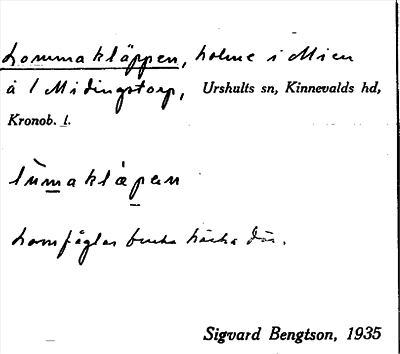 Lommakläppen, holme i Mien
å / Midingstorp, Urshults sn, Kinnevalds hd,
Kronob. l.
lùmaklápan
Lomfåglar bruka häcka där.
Sigvard Bengtson, 1935